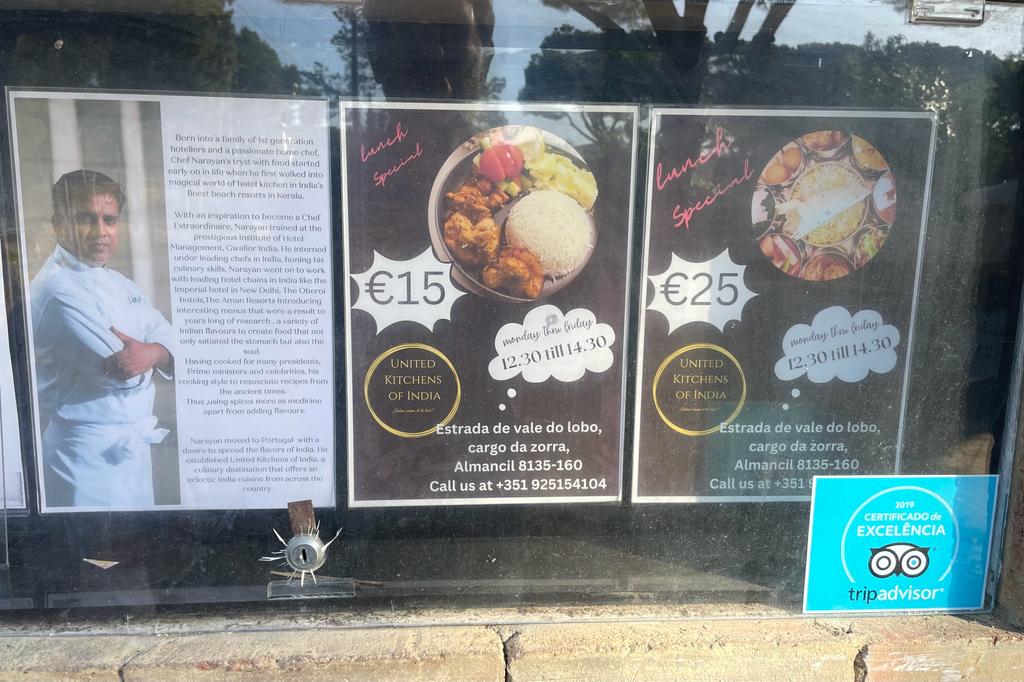 Born into a family of 1st generation
hoteliers and a passionate home chef,
Chef Narayan's tryst with food started
early on in life when he first walked into
magical world of hotel kitchen in India's
finest beach resorts in Kerala.
With an inspiration to become a Chef
Extraordinaire, Narayan trained at the
prestigious Institute of Hotel
Management, Gwalior India. He interned
under leading chefs in India, honing his
culinary skills. Narayan went on to work
with leading hotel chains in India like the
Imperial hotel in New Delhi, The Oberoi
hotels,The Aman Resorts Introducing
interesting menus that were a result to
years long of research , a variety of
Indian flavours to create food that not
only satiated the stomach but also the
soul.
Having cooked for many presidents,
Prime ministers and celebrities, his
cooking style to resusciate recipes from
the ancient times.
Thus ,using spices more as medicine
apart from adding flavours.
Narayan moved to Portugal with a
desire to spread the flavors of India. He
established United Kitchens of India, a
culinary destination that offers an
eclectic India cuisine from across the
country.
Lunch
Special
€15
monday thru friday
12.30 till 14.30
UNITED
KITCHENS
OF INDIA
Estrada de vale do lobo,
cargo da zorra,
Almancil 8135-160
Call us at +351 925154104
Lunch
Special
€25
monday thru friday
12.30 till 14.30
UNITED
KITCHENS
OF INDIA
Estrada de vale do lobo,
cargo da zorra,
Almancil 8135-160
Call us at +351
2019
CERTIFICADO de
EXCELÊNCIA
tripadvisor